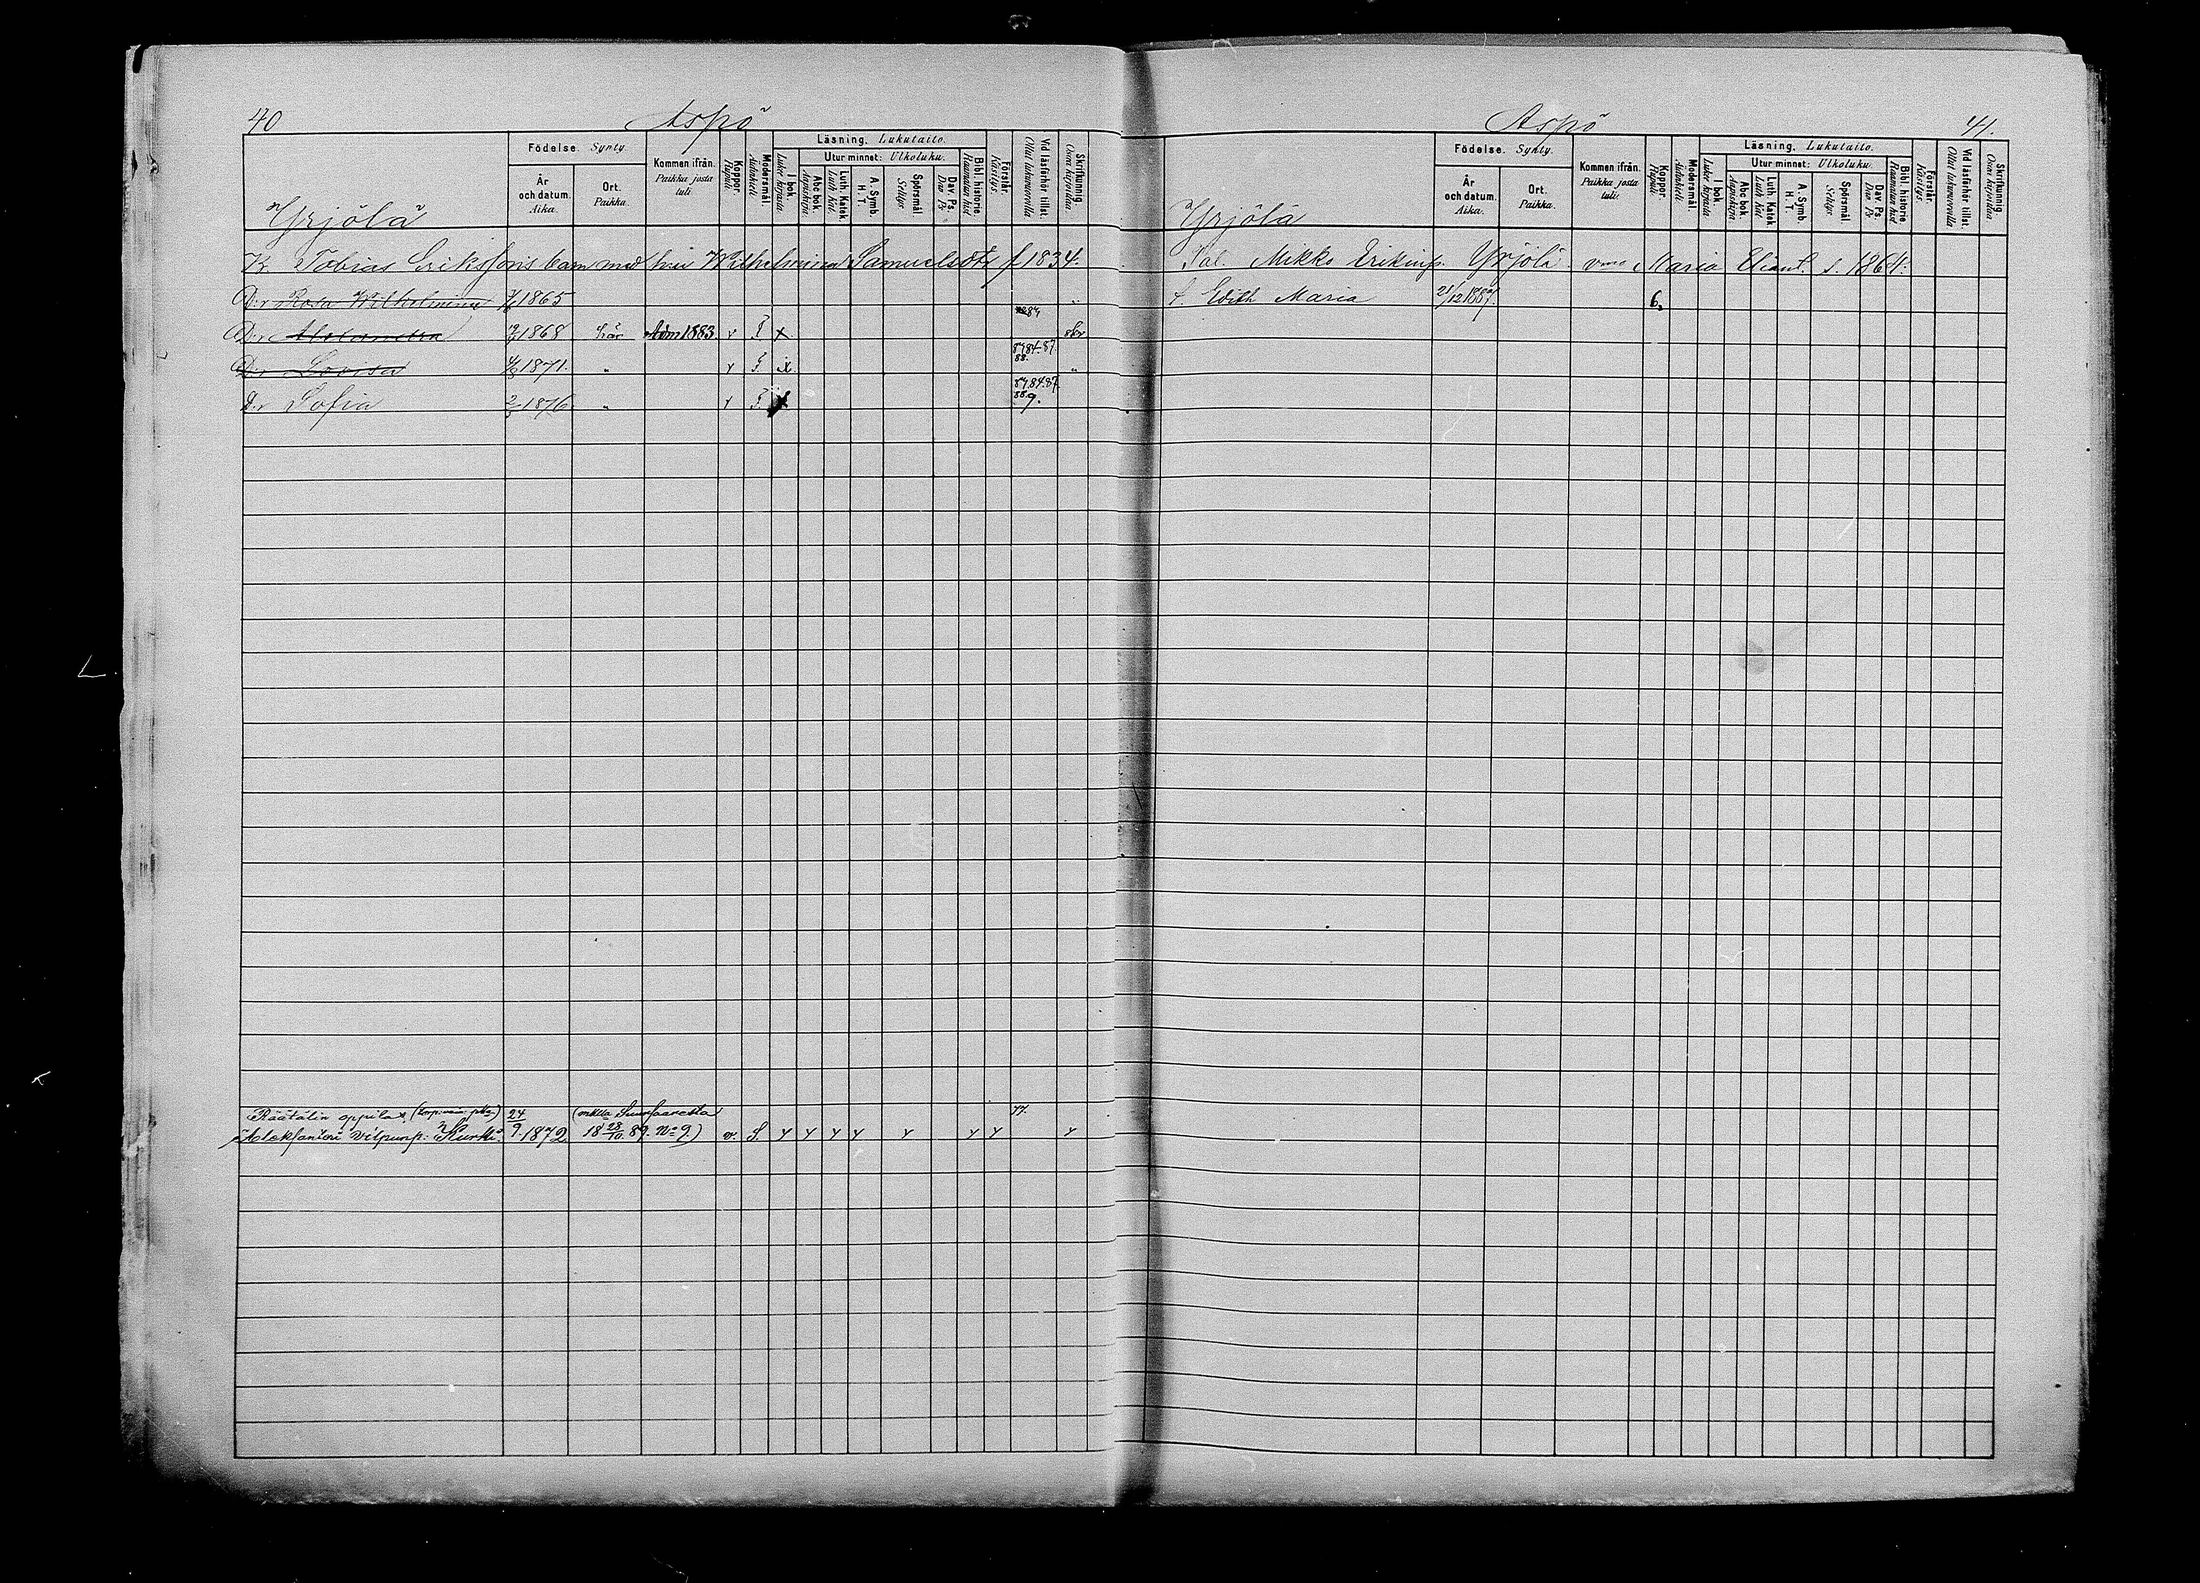 40
Aspö
Födelse. Synty.
År och datum. Aika.
Ort. Paikka.
Kommen ifrån. Paikka josta tuli.
Koppor. Rupuli.
Modersmål. Äidinkieli
Läsning. Lukutaito.
I bok. Lukee kirjasta
Utur minnet: Ulkoluku.
Abc bok. Aapiskirja
Luth. Katek. Luth. Kat.
A. Symb. H. T.
Spörsmål Selitys.
Dav. Ps. Dav. Ps
Bibl. historie Raamatun hist
Förstår. Käsitys.
Vid läsförhör tillst. Ollut lukuvuoroilla
Skrifkunnig. Osaa kirjoittaa
Yrjölä
Tobias Erikssons barn med hu Wilhelmina Samuelsdtr f 1834.
D:r Rosa Wilhelmina 1865
D:r 1868 här Adm 1883. v F x skr
D:r Lovisa 1871. " v F x 84.87. 88. "
D:r Sofia 1876 " v F 84.87. 88.9.
Räätälin oppilas 24
Aleksanteri Vilpunp: Kurki. 9 1872 18 28/10 89. No 9.) v. S. Y Y Y Y Y Y Y Y
Aspö
41.
Födelse. Synty.
År och datum. Aika.
Ort. Paikka.
Kommen ifrån. Paikka josta tuli.
Koppor. Rupuli
Modersmål. Äidinkieli
Läsning. Lukutaito.
I bok Lukee kirjasta
Utur minnet: Ulkoluku.
Abc bok Aapiskirja
Luth. Katek Luth. Kat
A. Symb. H. T.
Spörsmål Selitys
Dav. Ps Dav. Ps
Bibl. historie Raamatun hist
Förstår. Käsitys
Vid läsförhör tillst. Ollut lukuvuoroilla
Skrifkunnig. Osaa kirjoittaa
Yrjölä
Tal. Mikko Erikinp. Yrjölä Maria s. 1864.
t. Edith Maria 21/12 1887. 6.